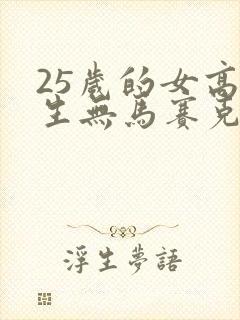 25歲的女高
生無馬賽克
浮生夢語